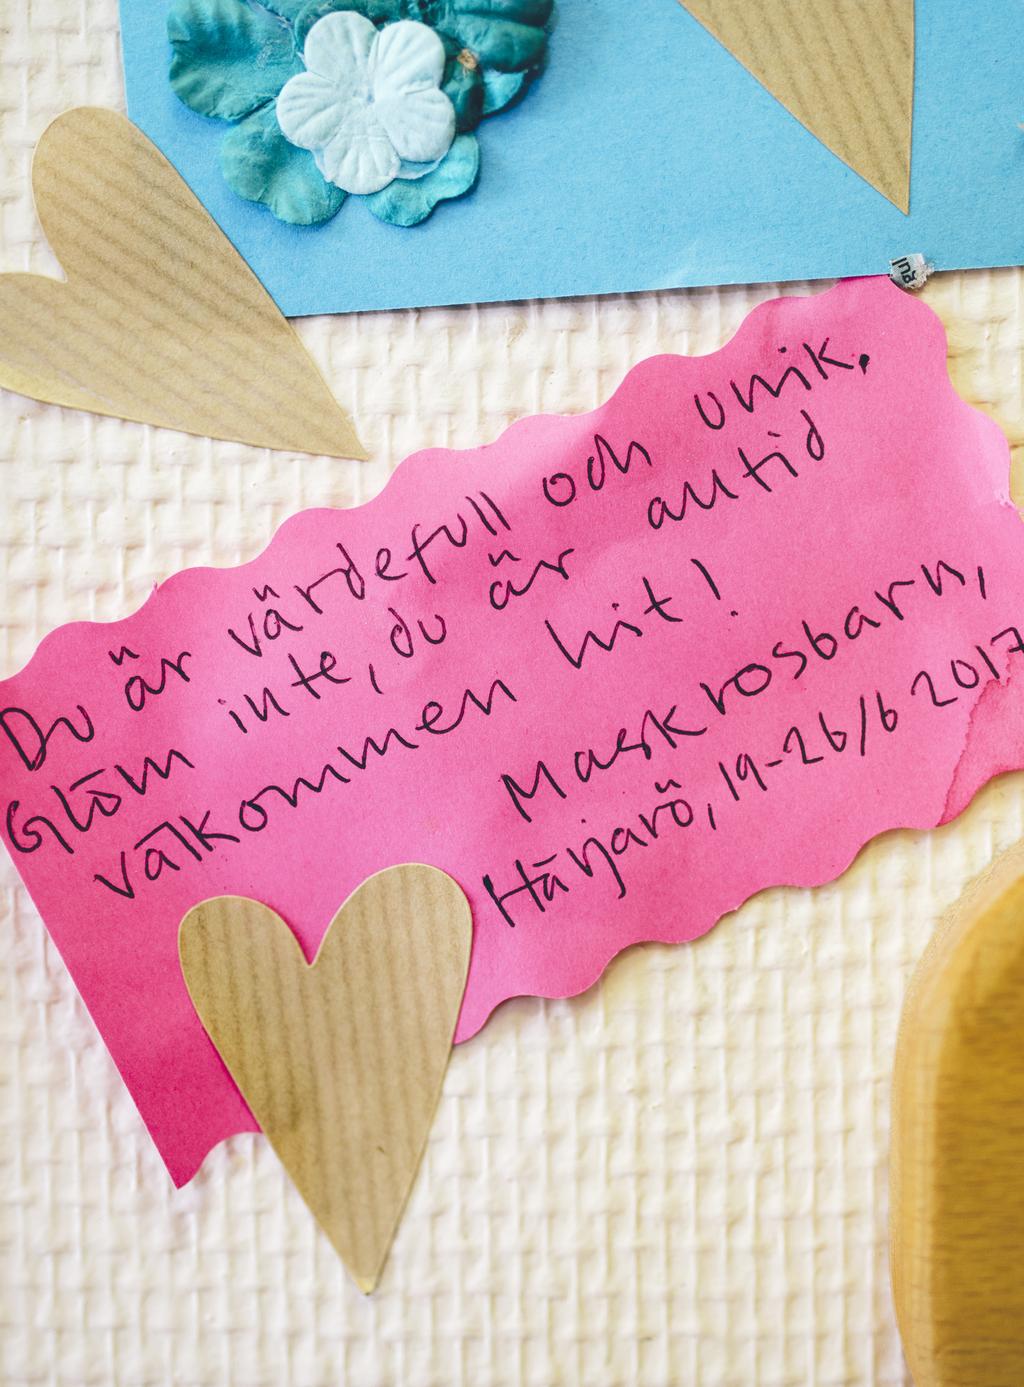 gul
Du är värdefull och unik.
Glöm inte, du är alltid
välkommen hit!
Maskrosbarn,
Härjarö, 19-26/6 2017